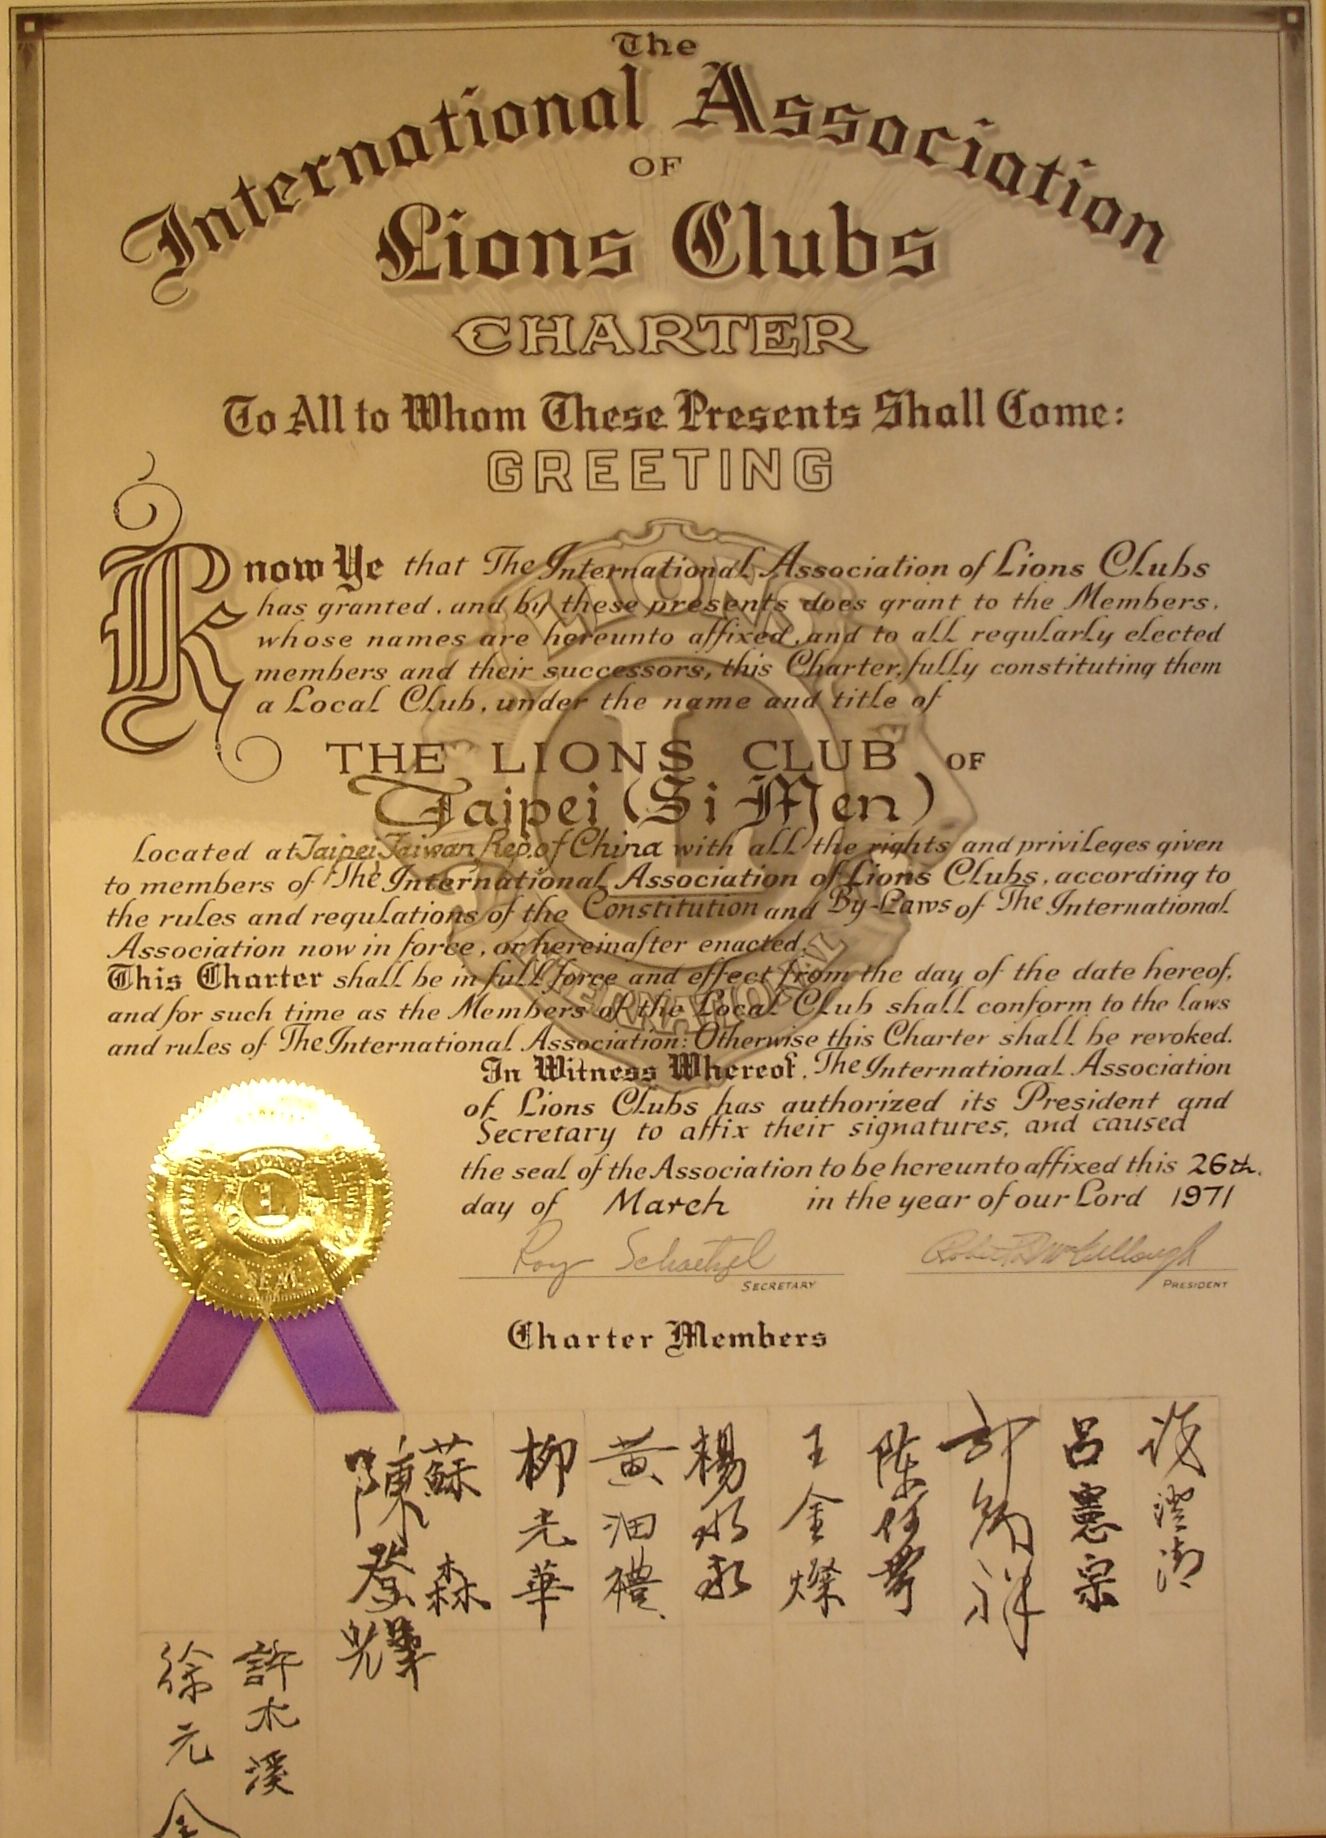 The
International Association
OF
Lions Clubs
CHARTER
To All to Whom These Presents Shall Come:
GREETING
Know Ye that The International Association of Lions Clubs
has granted, and by these presents does grant to the Members,
whose names are hereunto affixed, and to all regularly elected
members and their successors, this Charter, fully constituting them
a Local Club, under the name and title of
THE LIONS CLUB OF
Taipei (Si Men)
Located at Taipei Taiwan Rep. of China with all the rights and privileges given
to members of The International Association of Lions Clubs, according to
the rules and regulations of the Constitution and By-Laws of The International
Association now in force, or hereinafter enacted.
This Charter shall be in full force and effect from the day of the date hereof,
and for such time as the Members of the Local Club shall conform to the laws
and rules of The International Association: Otherwise this Charter shall be revoked.
In Witness Whereof, The International Association
of Lions Clubs has authorized its President and
Secretary to affix their signatures, and caused
the seal of the Association to be hereunto affixed this 26th.
day of March in the year of our Lord 1971
Roy Schaetzel
SECRETARY
Robert D. McCullough
PRESIDENT
LIONS
INTERNATIONAL
SEAL
Charter Members
呂憲宗
祥
陈
王金燦
楊
黃 禮
柳光華
蘇森
陳登
許水溪
徐元金